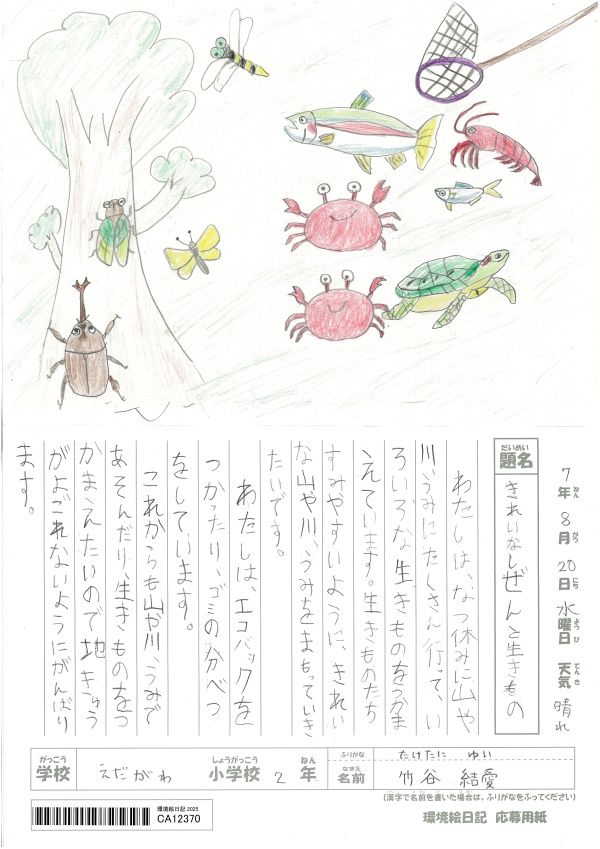 7年 8月 20日 水曜日 天気 晴れ
ねん がつ にち ようび てんき
だいめい
題名
きれいなしぜんと生きもの
わたしは、なつ休みに山や
川、うみにたくさん行って、い
ろいろな生きものをつかま
えています。生きものたち
すみやすいように、きれい
な山や川、うみをまもっていき
たいです。
わたしは、エコバックを
つかったり、ゴミの分べつ
をしています。
これからも山や川、うみで
あそんだり、生きものをつ
かまえたいので地きゅう
がよごれないようにがんばり
ます。
がっこう しょうがっこう ねん
学校 えだがわ 小学校 2 年
ふりがな たけたに ゆい
なまえ
名前 竹谷 結愛
(漢字で名前を書いた場合は、ふりがなをふってください)
環境絵日記 2025
CA12370
環境絵日記 応募用紙